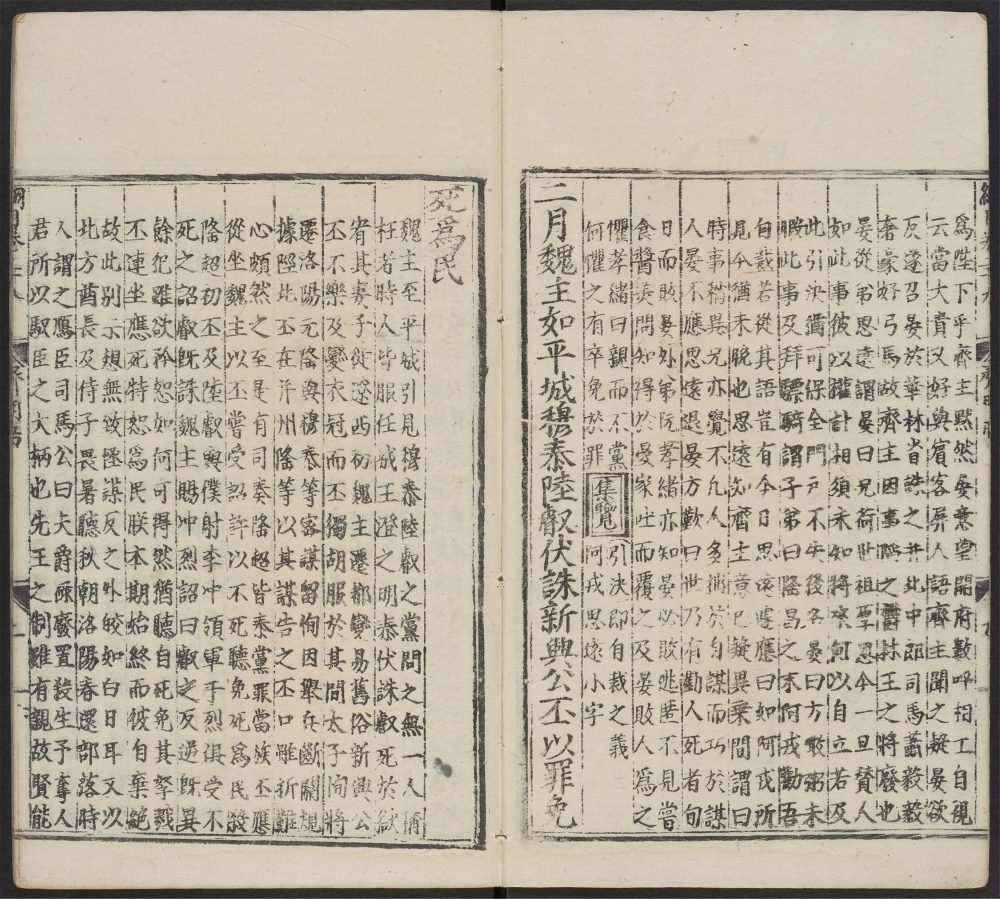 爲陛下乎齊主默然晏意望開府數呼相工自視
云當大貴又好與賓客屏人語齊主聞之疑晏欲
反遂召晏於華林省誅之并北中郎司馬蕭毅毅
奢豪好弓馬故齊主因事陷之鬱林王之將廢也
晏從弟思遠謂晏曰兄荷世祖厚恩今一旦贊人
如此事彼以權計相須未知將來何以自立若及
此引決猶可保全門戶不失後名晏曰方噉粥未
暇此事及拜驃騎謂子弟曰隆昌之末阿戎勸吾
自裁若從其語豈有今日思遠遽應曰如阿戎所
見今猶未晚也思遠知齊主意已疑異乗間謂曰
時事稍異兄亦覺不凡人多拙於自謀而巧於謀
人晏不應思遠退晏方歎曰世乃有勸人死者旬
日而敗晏外弟阮孝緒亦知晏必敗逃匿不見嘗
食醬美問知得於晏家吐而覆之及晏敗人爲之
懼孝緒曰親而不黨
何懼之有卒免於罪集覽引決即自裁之義
阿戎思遠小字
二月魏主如平城穆泰陸叡伏誅新興公丕以罪免
死爲民
魏主至平城引見穆泰陸叡之黨問之無一人稱
枉者時人皆服任成王澄之明泰伏誅叡死於獄
宥其妻子徙遼西初魏主遷都變易舊俗新興公
丕不樂及變衣冠而丕獨胡服於其間太子恂將
遷洛陽元隆與穆泰等密謀留恂因舉兵斷關規
據陘北丕在并州隆等以其謀告之丕口雖祈難
心頗然之至是有司奏隆超皆泰黨罪當族丕應
從坐魏主以丕嘗受詔許以不死聽免死爲民殺
隆超初丕及陸叡與僕射李冲領軍于烈俱受不
死之詔叡旣誅魏主賜冲烈詔曰叡之反逆旣異
餘犯雖欲矜恕如何可得然猶聽自死免其孥戮
不連坐應死特恕爲民朕本期始終而彼自棄絶
故此別示想無致怪謀反之外皎如白日耳又以
北方酋長及侍子畏暑聽秋朝洛陽春還部落時
人謂之鴈臣司馬公曰夫爵祿廢置殺生予奪人
君所以馭臣之大柄也先王之制雖有親故賢能